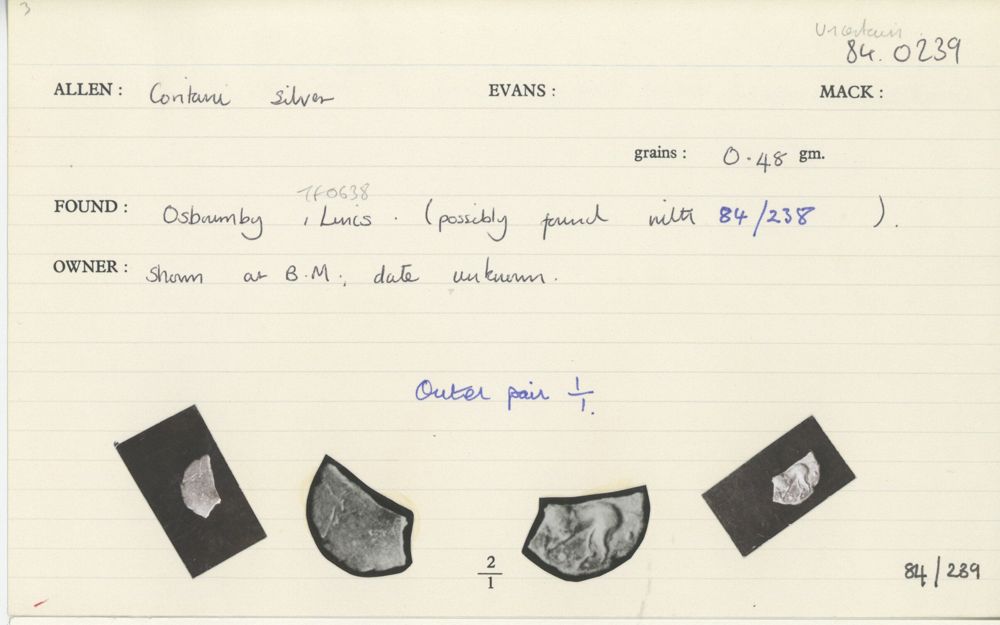 3
Uncertain
84. 0239
ALLEN : Coritani silver EVANS : MACK :
grains : 0.48 gm.
TF0638
FOUND : Osbournby, Lincs. (possibly found with 84/238 ).
OWNER : Shown at B.M.; date unknown.
Outer pair 1/1.
2/1
84/239